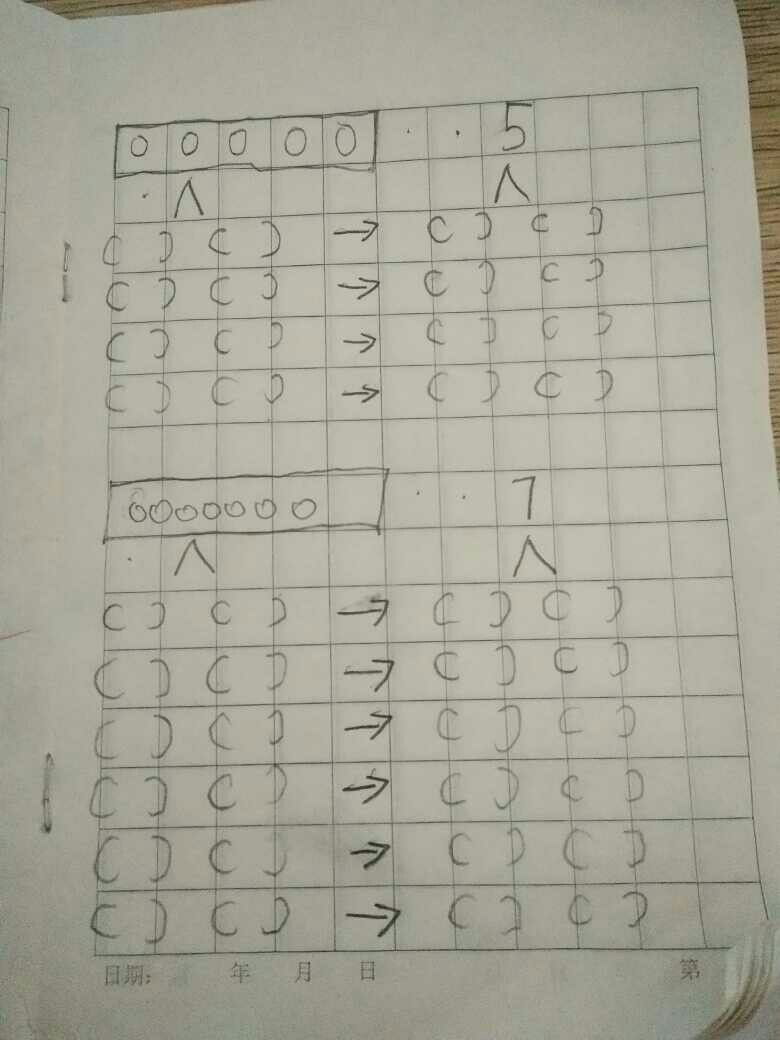 0 0 0 0 0 · · 5
· ∧ ∧
( ) ( ) → ( ) ( )
( ) ( ) → ( ) ( )
( ) ( ) → ( ) ( )
( ) ( ) → ( ) ( )
0 0 0 0 0 0 0 · · 7
· ∧ ∧
( ) ( ) → ( ) ( )
( ) ( ) → ( ) ( )
( ) ( ) → ( ) ( )
( ) ( ) → ( ) ( )
( ) ( ) → ( ) ( )
( ) ( ) → ( ) ( )
日期: 年 月 日 第